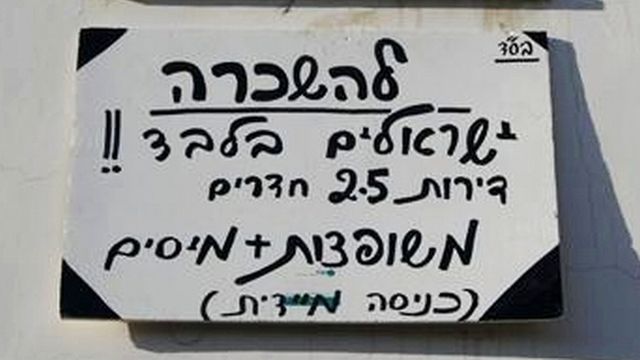 בס"ד
להשכרה
ישראלים בלבד !!
דירות 2.5 חדרים
משופצות + מיסים
(כניסה מיידית)